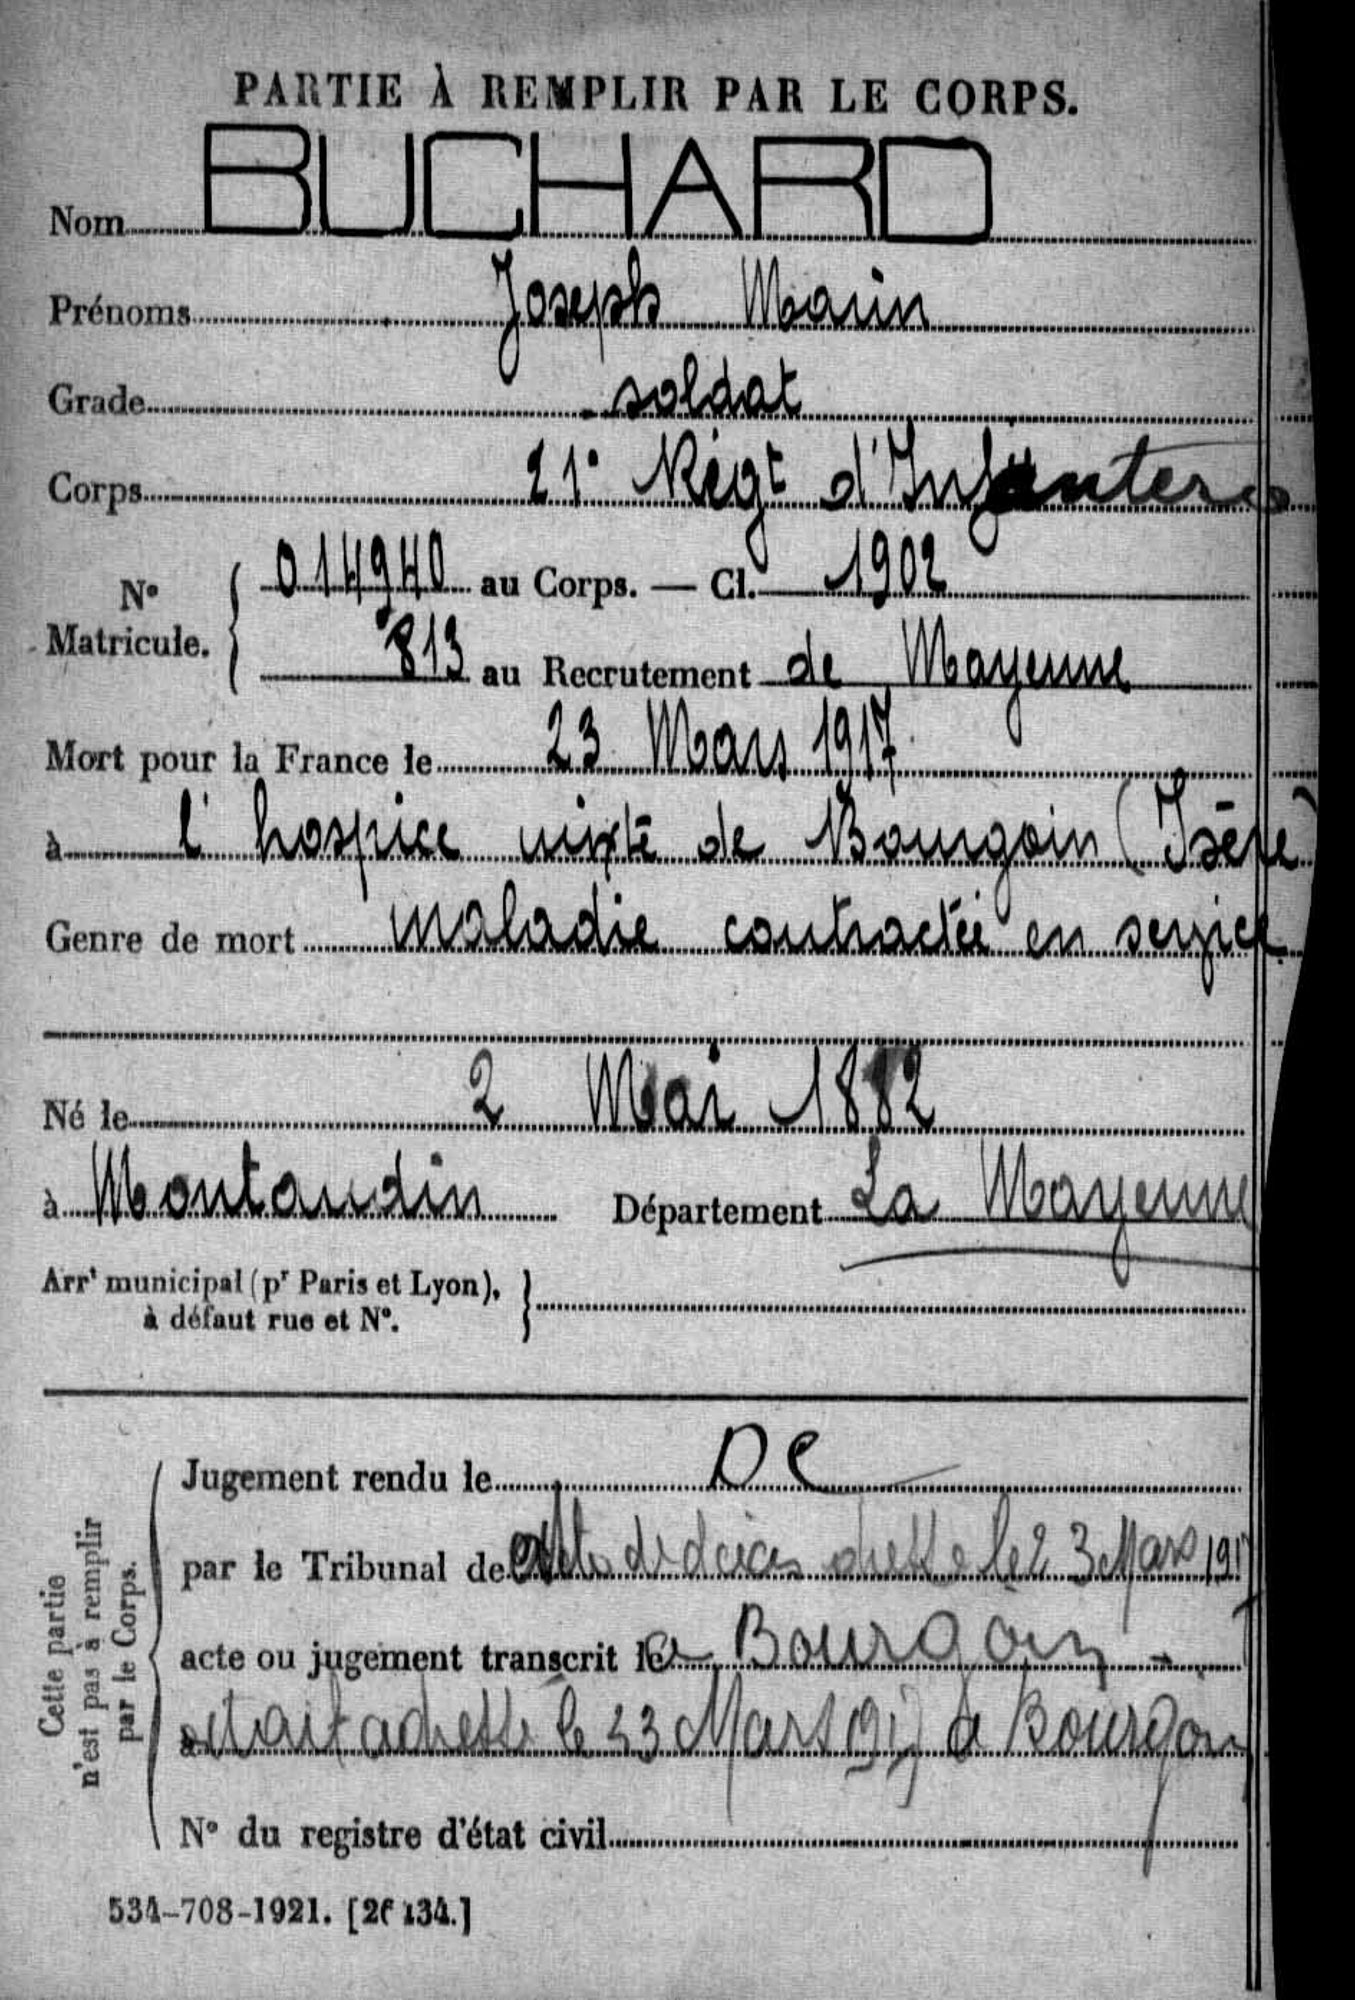 PARTIE À REMPLIR PAR LE CORPS.
Nom BUCHARD
Prénoms Joseph Marin
Grade soldat
Corps 21e Régt d'Infanterie
N° Matricule. 014940 au Corps. — Cl. 1902
813 au Recrutement de Mayenne
Mort pour la France le 23 Mars 1917
à l'hospice mixte de Bourgoin (Isère)
Genre de mort maladie contractée en service
Né le 2 Mai 1882
à Montaudin Département La Mayenne
Arrt municipal (pr Paris et Lyon),
à défaut rue et N°.
Cette partie
n'est pas à remplir
par le Corps.
Jugement rendu le DC
par le Tribunal de Acte de décès dressé le 23 Mars 1917
acte ou jugement transcrit le a Bourgoin
à dressé le 23 Mars 1917 à Bourgoin
N° du registre d'état civil
534-708-1921. [26134.]